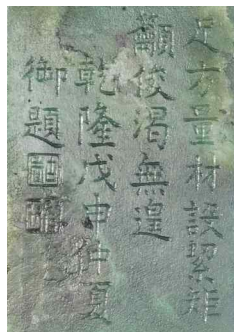 足方量材設絜矩
籲俊渴無遑
乾隆戊申仲夏
御題